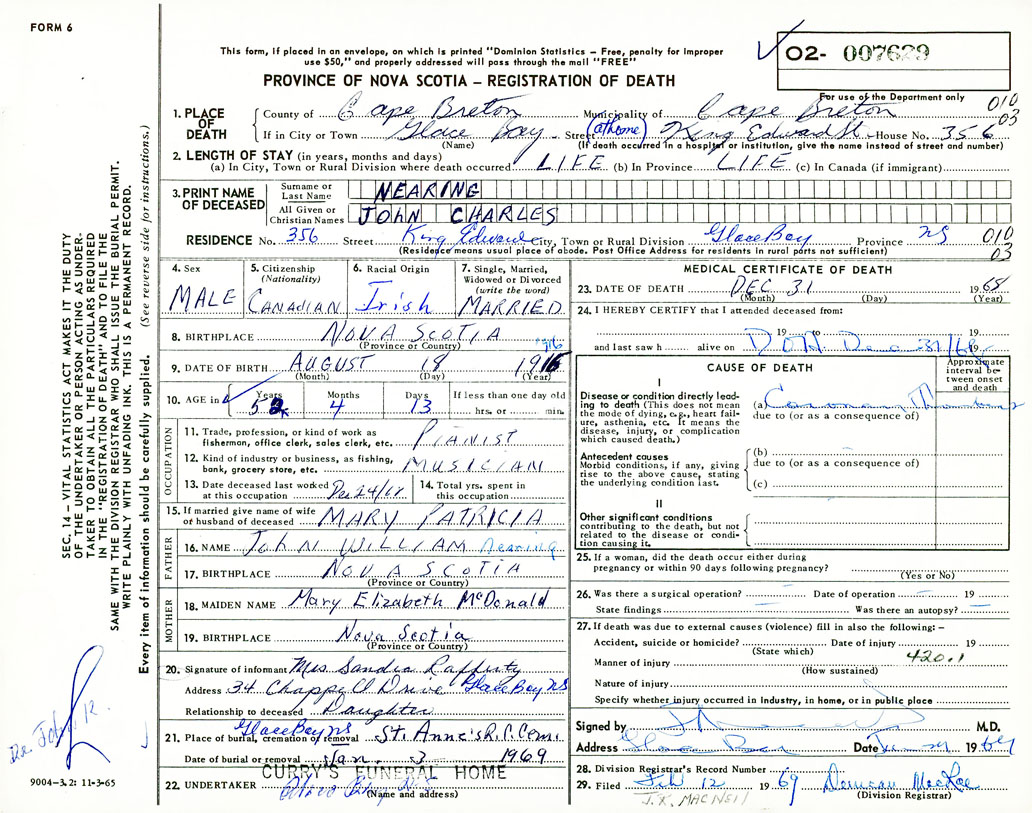 FORM 6
This form, if placed in an envelope, on which is printed "Dominion Statistics – Free, penalty for improper
use $50," and properly addressed will pass through the mail "FREE"
O2- 007629
PROVINCE OF NOVA SCOTIA – REGISTRATION OF DEATH
For use of the Department only
010
03
1. PLACE OF DEATH
County of Cape Breton Municipality of Cape Breton
If in City or Town Glace Bay Street (at home) King Edward St. House No. 356
(Name) (If death occurred in a hospital or institution, give the name instead of street and number)
2. LENGTH OF STAY (in years, months and days)
(a) In City, Town or Rural Division where death occurred LIFE (b) In Province LIFE (c) In Canada (if immigrant)
3. PRINT NAME OF DECEASED
Surname or Last Name NEARING
All Given or Christian Names JOHN CHARLES
RESIDENCE No. 356 Street King Edward City, Town or Rural Division Glace Bay Province NS
(Residence means usual place of abode. Post Office Address for residents in rural parts not sufficient)
010
03
4. Sex
MALE
5. Citizenship
(Nationality)
CANADIAN
6. Racial Origin
Irish
7. Single, Married,
Widowed or Divorced
(write the word)
MARRIED
8. BIRTHPLACE NOVA SCOTIA
(Province or Country)
1916
9. DATE OF BIRTH AUGUST 18 1916
(Month) (Day) (Year)
10. AGE in Years Months Days If less than one day old
52 4 13 hrs. or min.
OCCUPATION
11. Trade, profession, or kind of work as
fisherman, office clerk, sales clerk, etc. PIANIST
12. Kind of industry or business, as fishing,
bank, grocery store, etc. MUSICIAN
13. Date deceased last worked
at this occupation Dec 24/68
14. Total yrs. spent in
this occupation
15. If married give name of wife
or husband of deceased MARY PATRICIA
FATHER
16. NAME JOHN WILLIAM Nearing
17. BIRTHPLACE NOVA SCOTIA
(Province or Country)
MOTHER
18. MAIDEN NAME Mary Elizabeth McDonald
19. BIRTHPLACE Nova Scotia
(Province or Country)
20. Signature of informant Mrs Sandra Rafferty
Address 34 Chappell Drive Glace Bay NS
Relationship to deceased Daughter
Glace Bay NS
21. Place of burial, cremation or removal St. Anne's R.C. Cem.
Date of burial or removal Jan. 3 1969
CURRY'S FUNERAL HOME
22. UNDERTAKER
(Name and address)
MEDICAL CERTIFICATE OF DEATH
23. DATE OF DEATH DEC 31 1968
(Month) (Day) (Year)
24. I HEREBY CERTIFY that I attended deceased from:
19 to 19
and last saw h alive on Dec 31/68 19
CAUSE OF DEATH
Approximate interval between onset and death
I
Disease or condition directly leading
to death (This does not mean
the mode of dying, e.g., heart failure,
asthenia, etc. It means the
disease, injury, or complication
which caused death.)
(a) Coronary Thrombosis
due to (or as a consequence of)
Antecedent causes
Morbid conditions, if any, giving
rise to the above cause, stating
the underlying condition last.
(b)
due to (or as a consequence of)
(c)
II
Other significant conditions
contributing to the death, but not
related to the disease or condition
causing it.
25. If a woman, did the death occur either during
pregnancy or within 90 days following pregnancy?
(Yes or No)
26. Was there a surgical operation? Date of operation 19
State findings Was there an autopsy?
27. If death was due to external causes (violence) fill in also the following: –
Accident, suicide or homicide? Date of injury 19
(State which)
420.1
Manner of injury
(How sustained)
Nature of injury
Specify whether injury occurred in Industry, in home, or in public place
Signed by M.D.
Address Glace Bay Date 1969
28. Division Registrar's Record Number
29. Filed Feb 12 1969 Duncan MacRae
(Division Registrar)
J.K. MACNEIL
SEC. 14 – VITAL STATISTICS ACT MAKES IT THE DUTY
OF THE UNDERTAKER OR PERSON ACTING AS UNDER-
TAKER TO OBTAIN ALL THE PARTICULARS REQUIRED
IN THE "REGISTRATION OF DEATH" AND TO FILE THE
SAME WITH THE DIVISION REGISTRAR WHO SHALL ISSUE THE BURIAL PERMIT.
WRITE PLAINLY WITH UNFADING INK. THIS IS A PERMANENT RECORD.
Every item of information should be carefully supplied. (See reverse side for instructions.)
9004–3.2: 11-3-65